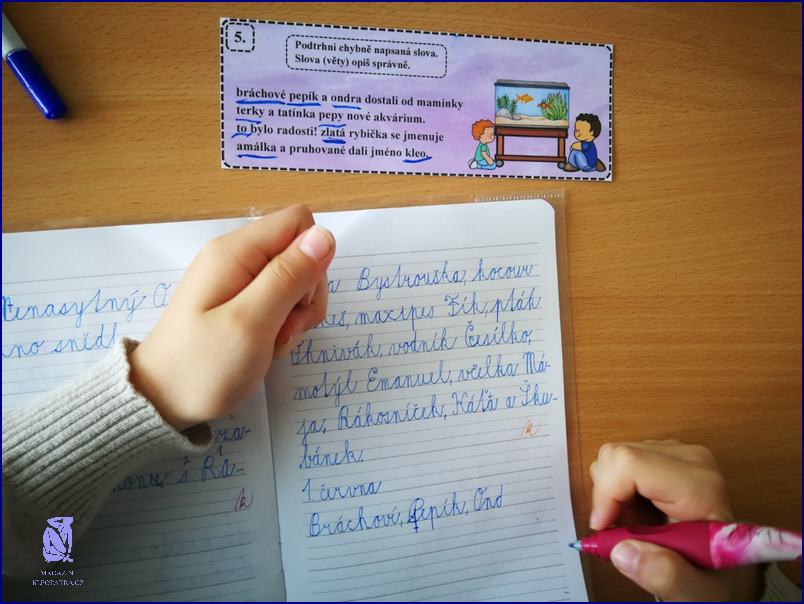 5.
Podtrhni chybně napsaná slova.
Slova (věty) opiš správně.
bráchové pepík a ondra dostali od maminky
terky a tatínka pepy nové akvárium.
to bylo radosti! zlatá rybička se jmenuje
amálka a pruhované dali jméno kleo.
Nenasytný O
no snědl
s Rů-
k
a Bystrouška, kocour
maxipes Fík, pták
Ohnivák, vodník Česílko,
motýl Emanuel, včelka Má-
ja, Rákosníček, Káťa a Šku-
bánek.
k
1. června
Bráchové, Pepík, Ond
MAGAZÍN
KLEOPATRA.CZ